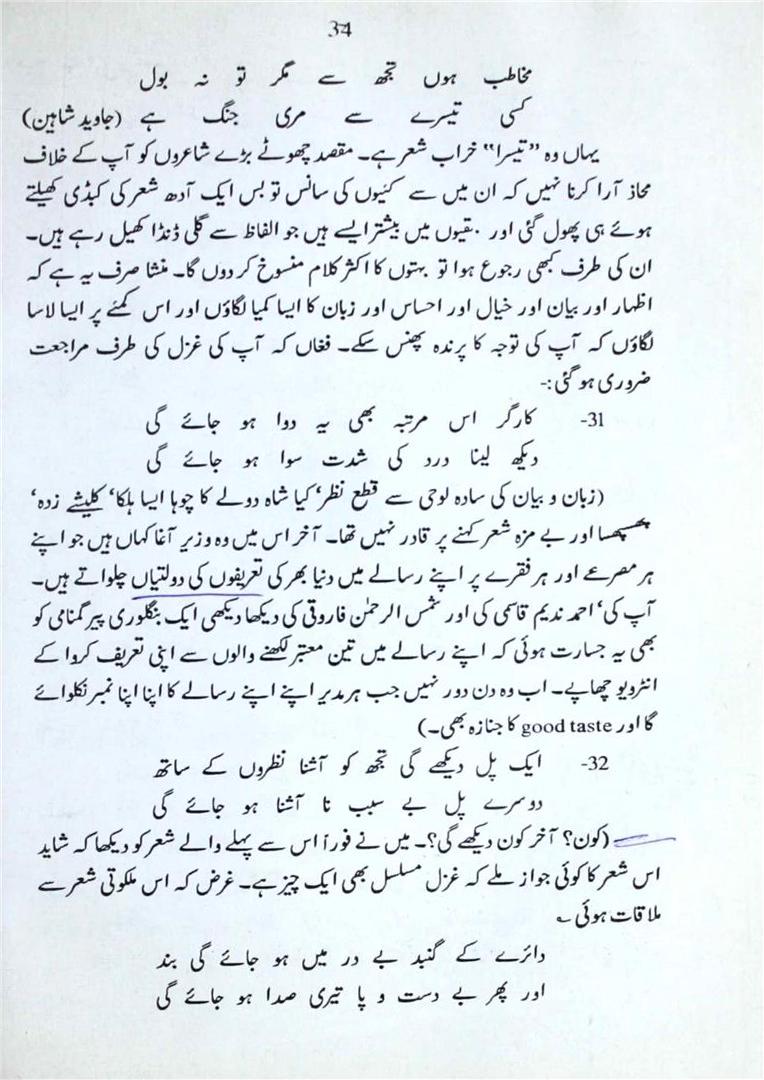 34
مخاطب ہوں تجھ سے مگر تو نہ بول
کسی تیسرے سے مری جنگ ہے (جاوید شاہین)
یہاں وہ "تیسرا" خراب شعر ہے۔ مقصد چھوٹے بڑے شاعروں کو آپ کے خلاف
محاذ آرا کرنا نہیں کہ ان میں سے کئیوں کی سانس تو بس ایک آدھ شعر کی کبڈی کھیلتے
ہوئے ہی پھول گئی اور بقیوں میں بیشتر ایسے ہیں جو الفاظ سے گلی ڈنڈا کھیل رہے ہیں۔
ان کی طرف کبھی رجوع ہوا تو بہتوں کا اکثر کلام منسوخ کر دوں گا۔ منشا صرف یہ ہے کہ
اظہار اور بیان اور خیال اور احساس اور زبان کا ایسا کمپا لگاؤں اور اس کمپے پر ایسا لاسا
لگاؤں کہ آپ کی توجہ کا پرندہ پھنس سکے۔ فغاں کہ آپ کی غزل کی طرف مراجعت
ضروری ہو گئی:-
31- کارگر اس مرتبہ بھی یہ دوا ہو جائے گی
دیکھ لینا درد کی شدت سوا ہو جائے گی
(زبان و بیان کی سادہ لوحی سے قطع نظر' کیا شاہ دولے کا چوہا ایسا ہلکا' کلیشے زدہ'
پھسپھسا اور بے مزہ شعر کہنے پر قادر نہیں تھا۔ آخر اس میں وہ وزیر آغا کہاں ہیں جو اپنے
ہر مصرعے اور ہر فقرے پر اپنے رسالے میں دنیا بھر کی تعریفوں کی دولتیاں چلواتے ہیں۔
آپ کی' احمد ندیم قاسمی کی اور شمس الرحمٰن فاروقی کی دیکھا دیکھی ایک بنگلوری پیر گمنامی کو
بھی یہ جسارت ہوئی کہ اپنے رسالے میں تین معتبر لکھنے والوں سے اپنی تعریف کروا کے
انٹرویو چھاپے۔ اب وہ دن دور نہیں جب ہر مدیر اپنے اپنے رسالے کا اپنا اپنا نمبر نکلوائے
گا اور good taste کا جنازہ بھی۔)
32- ایک پل دیکھے گی تجھ کو آشنا نظروں کے ساتھ
دوسرے پل بے سبب نا آشنا ہو جائے گی
(کون؟ آخر کون دیکھے گی؟۔ میں نے فوراً اس سے پہلے والے شعر کو دیکھا کہ شاید
اس شعر کا کوئی جواز ملے کہ غزل مسلسل بھی ایک چیز ہے۔ غرض کہ اس ملکوتی شعر سے
ملاقات ہوئی ؎
دائرے کے گنبد بے در میں ہو جائے گی بند
اور پھر بے دست و پا تیری صدا ہو جائے گی